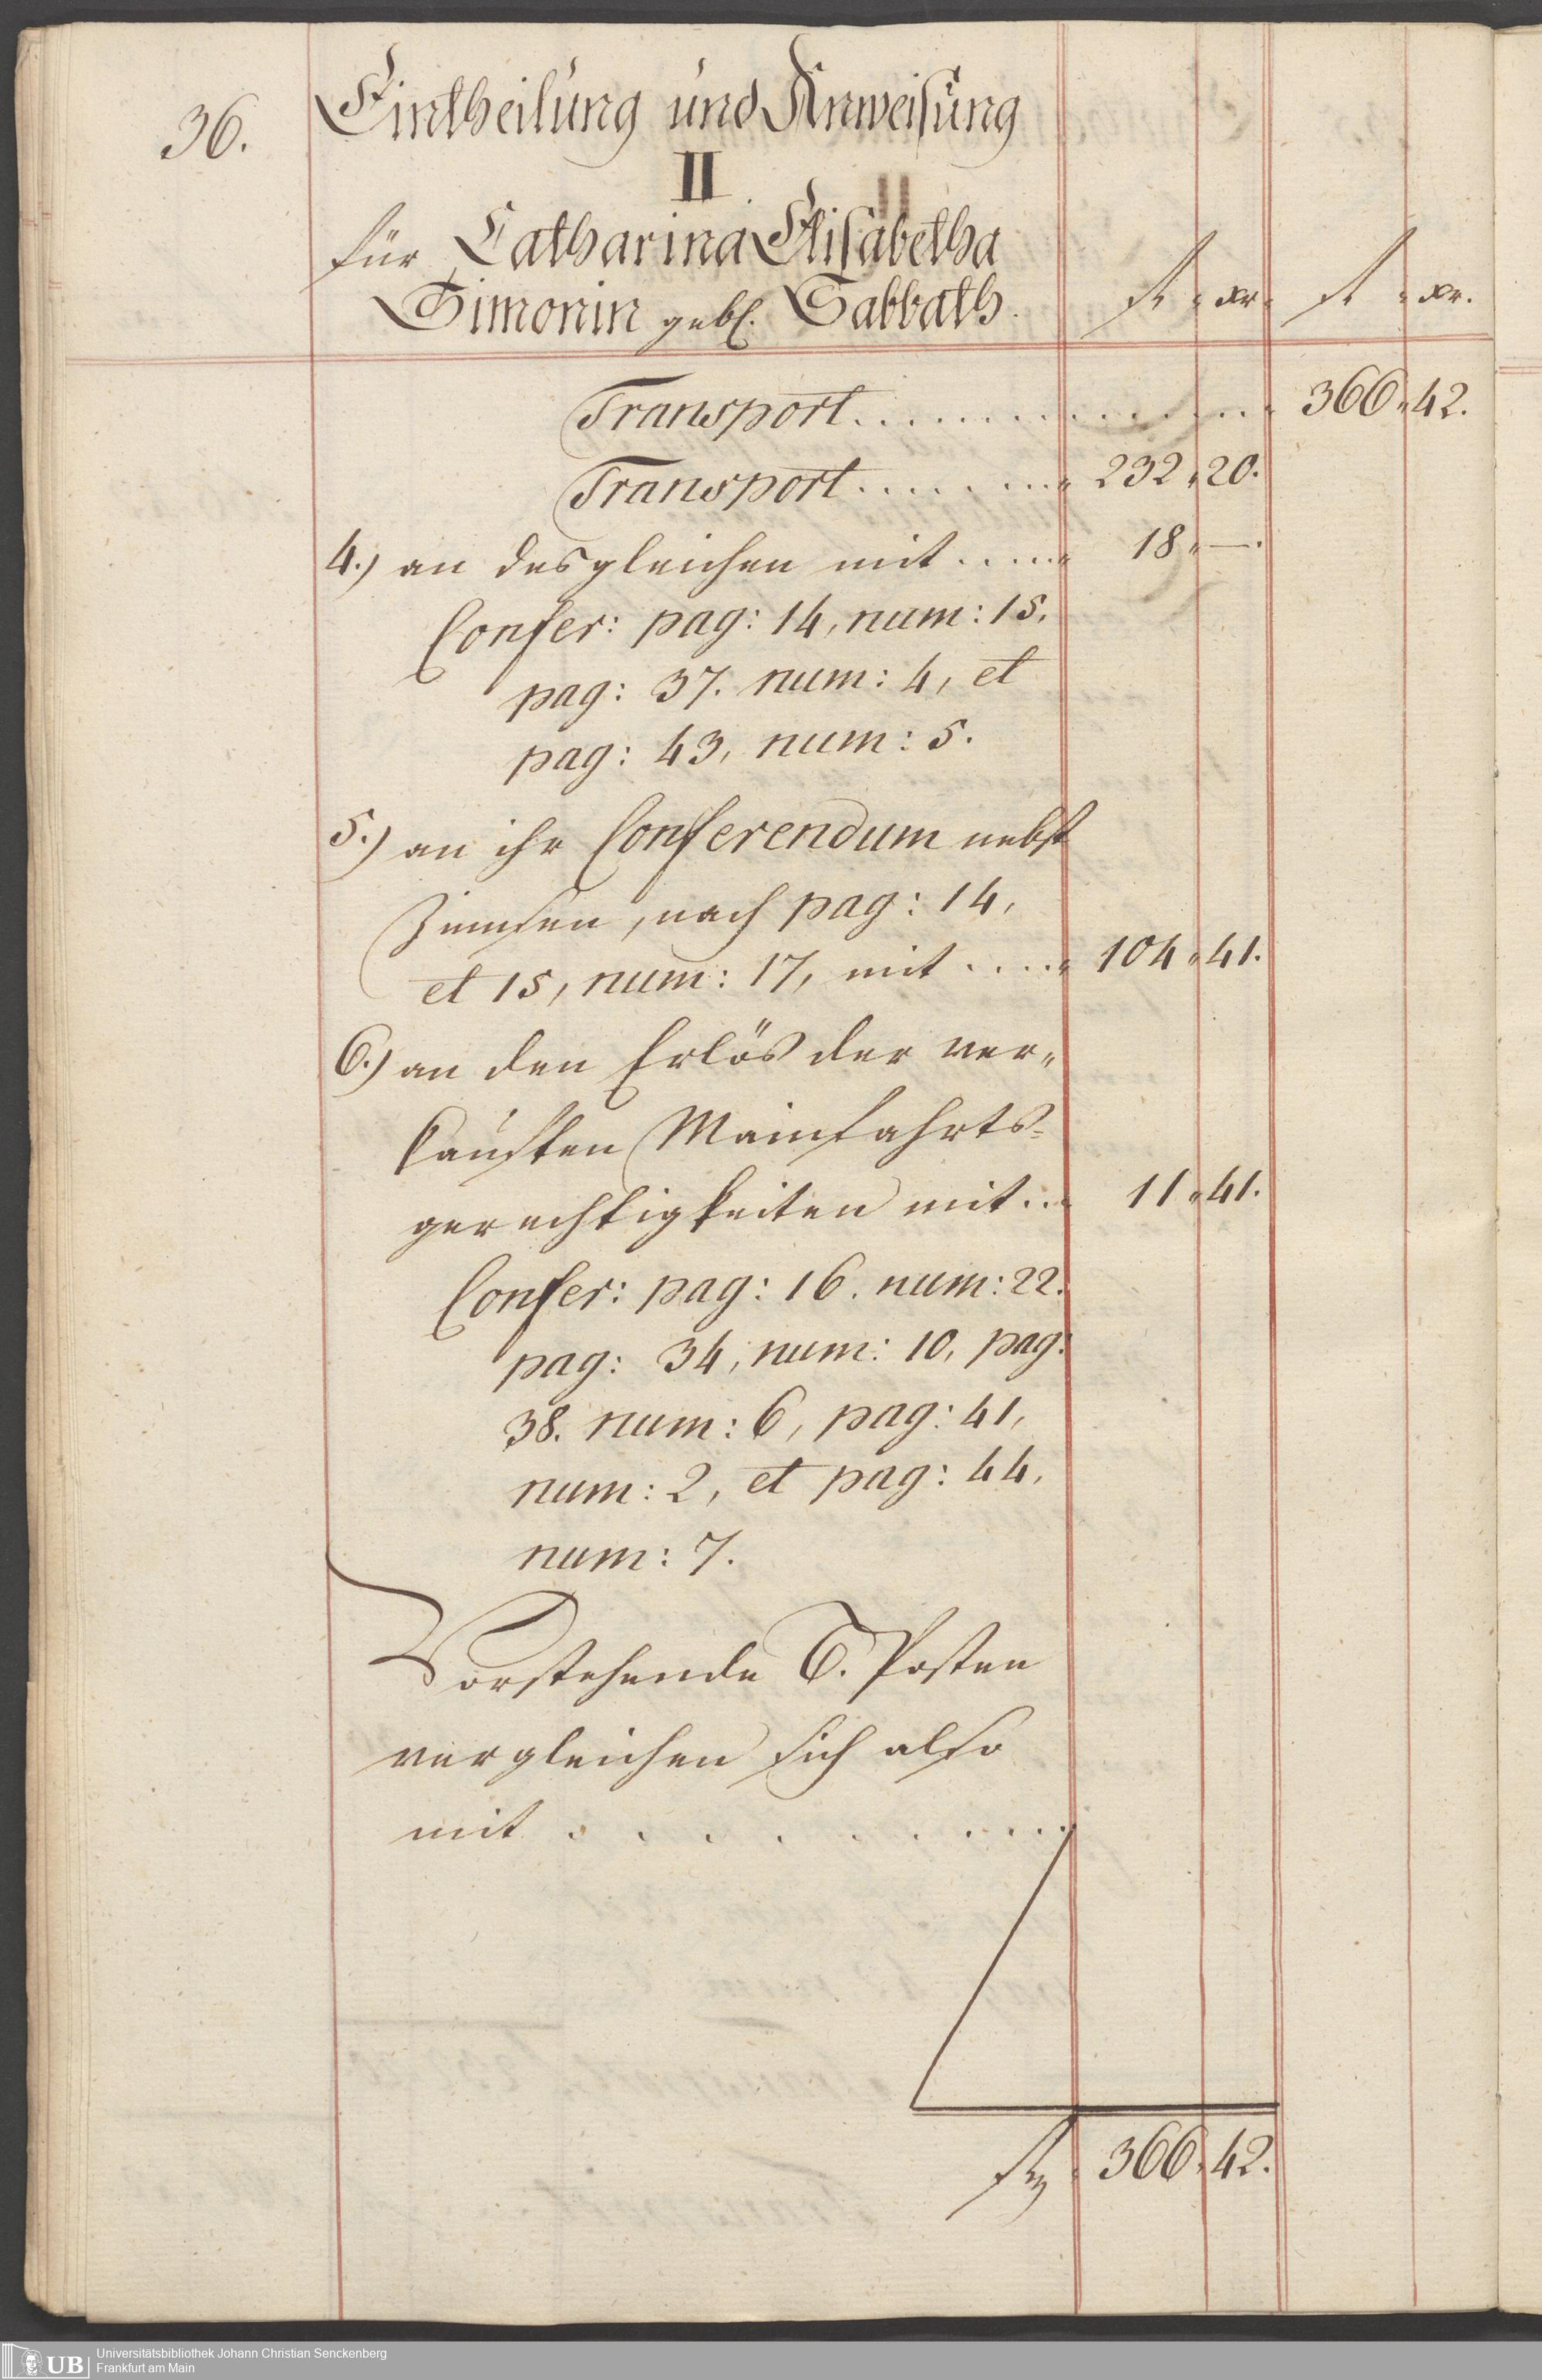 36.
Eintheilung und Anweisung
II
für Catharina Elisabetha
Simonin gebl. Sabbath.
fl. xr. fl. xr.
Transport................ 366. 42.
Transport......... 232. 20.
4.) an desgleichen mit...... 18. —.
Confer: pag: 14, num: 15.
pag: 37. num: 4, et
pag: 43, num: 5.
5.) an ihr Conferendum nebst
Zinnsen, nach pag: 14,
et 15, num: 17, mit..... 104. 41.
6.) an den Erlös der ver„
kauften Mainfahrts-
gerechtigkeiten mit... 11. 41.
Confer: pag: 16. num: 22.
pag: 34, num: 10, pag:
38. num: 6, pag: 41,
num: 2, et pag: 44,
num: 7.
Vorstehende 6. Posten
vergleichen sich also
mit ..........
fl. 366. 42.
UB
Universitätsbibliothek Johann Christian Senckenberg
Frankfurt am Main